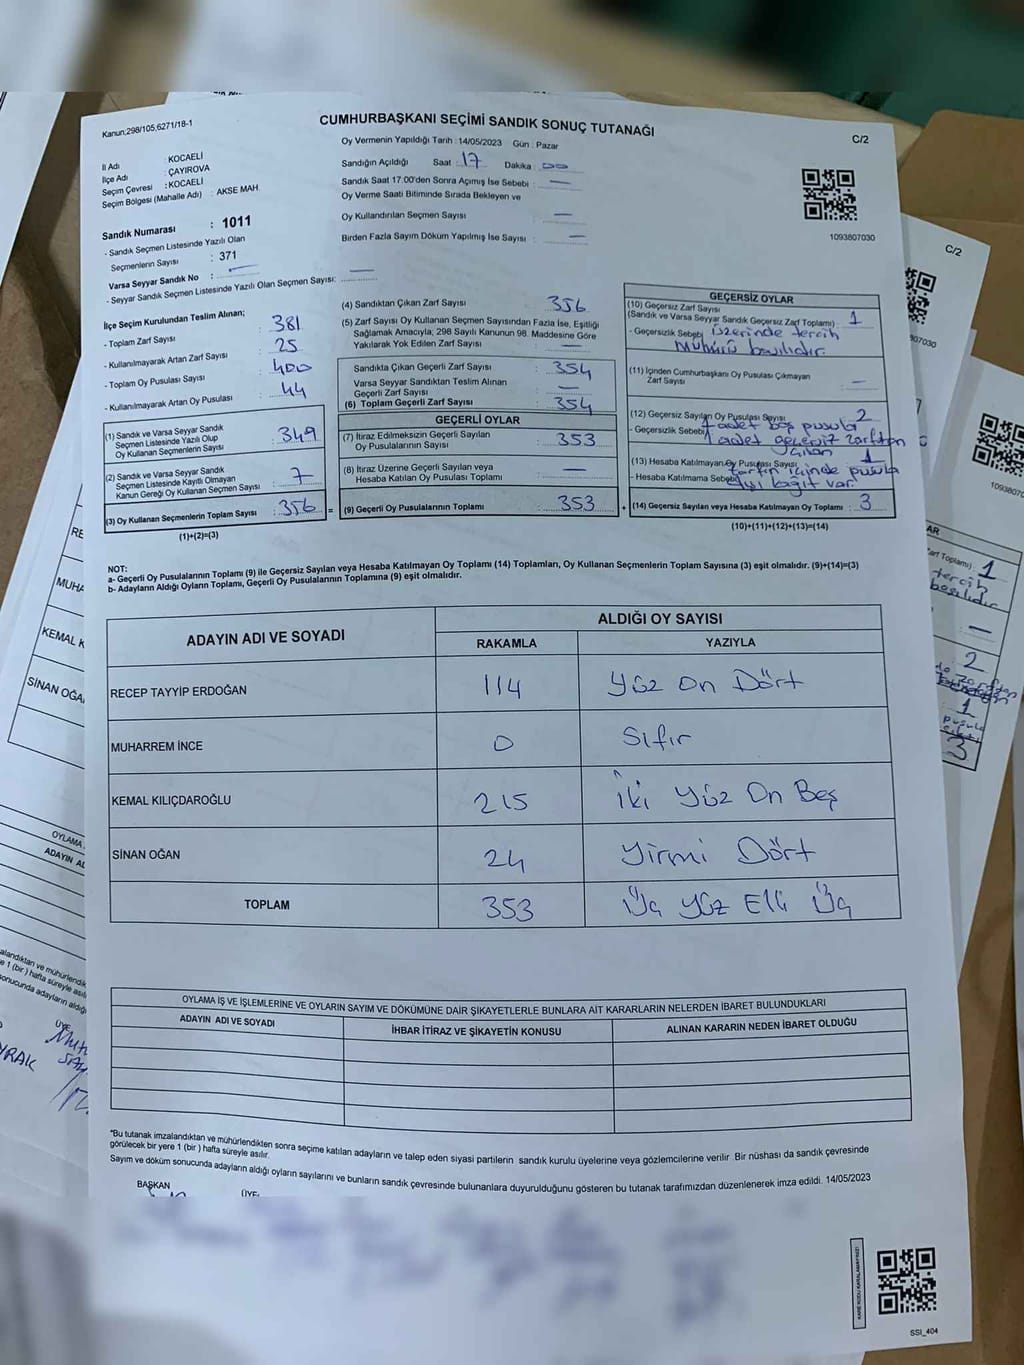 Kanun;298/105,6271/18-1
CUMHURBAŞKANI SEÇİMİ SANDIK SONUÇ TUTANAĞI
C/2
Oy Vermenin Yapıldığı Tarih : 14/05/2023 Gün : Pazar
İl Adı : KOCAELİ
İlçe Adı : ÇAYIROVA
Seçim Çevresi : KOCAELİ
Seçim Bölgesi (Mahalle Adı) : AKSE MAH.
Sandığın Açıldığı Saat : 17 Dakika : 00
Sandık Saat 17:00'den Sonra Açımış İse Sebebi : —
Oy Verme Saati Bitiminde Sırada Bekleyen ve
Oy Kullandırılan Seçmen Sayısı —
Birden Fazla Sayım Döküm Yapılmış İse Sayısı : —
1093807030
Sandık Numarası : 1011
- Sandık Seçmen Listesinde Yazılı Olan
Seçmenlerin Sayısı : 371
Varsa Seyyar Sandık No : —
- Seyyar Sandık Seçmen Listesinde Yazılı Olan Seçmen Sayısı: —
İlçe Seçim Kurulundan Teslim Alınan;
- Toplam Zarf Sayısı : 381
- Kullanılmayarak Artan Zarf Sayısı : 25
- Toplam Oy Pusulası Sayısı : 400
- Kullanılmayarak Artan Oy Pusulası : 44
(1) Sandık ve Varsa Seyyar Sandık
Seçmen Listesinde Yazılı Olup
Oy Kullanan Seçmenlerin Sayısı : 349
(2) Sandık ve Varsa Seyyar Sandık
Seçmen Listesinde Kayıtlı Olmayan
Kanun Gereği Oy Kullanan Seçmen Sayısı : 7
(3) Oy Kullanan Seçmenlerin Toplam Sayısı : 356 =
(1)+(2)=(3)
(4) Sandıktan Çıkan Zarf Sayısı 356
(5) Zarf Sayısı Oy Kullanan Seçmen Sayısından Fazla İse, Eşitliği
Sağlamak Amacıyla; 298 Sayılı Kanunun 98. Maddesine Göre
Yakılarak Yok Edilen Zarf Sayısı : —
Sandıkta Çıkan Geçerli Zarf Sayısı : 354
Varsa Seyyar Sandıktan Teslim Alınan
Geçerli Zarf Sayısı : —
(6) Toplam Geçerli Zarf Sayısı : 354
GEÇERLİ OYLAR
(7) İtiraz Edilmeksizin Geçerli Sayılan
Oy Pusulalarının Sayısı : 353
(8) İtiraz Üzerine Geçerli Sayılan veya
Hesaba Katılan Oy Pusulası Toplamı : —
(9) Geçerli Oy Pusulalarının Toplamı : 353 +
GEÇERSİZ OYLAR
(10) Geçersiz Zarf Sayısı
(Sandık ve Varsa Seyyar Sandık Geçersiz Zarf Toplamı) : 1
- Geçersizlik Sebebi üzerinde tercih
mühürü basılıdır.
(11) İçinden Cumhurbaşkanı Oy Pusulası Çıkmayan
Zarf Sayısı —
(12) Geçersiz Sayılan Oy Pusulası Sayısı 2
- Geçersizlik Sebebi 1 adet boş pusula
1 adet geçersiz zarftan
çıkan
(13) Hesaba Katılmayan Oy Pusulası Sayısı 1
- Hesaba Katılmama Sebebi zarfın içinde pusula
dışı kağıt var.
(14) Geçersiz Sayılan veya Hesaba Katılmayan Oy Toplamı : 3
(10)+(11)+(12)+(13)=(14)
NOT:
a- Geçerli Oy Pusulalarının Toplamı (9) ile Geçersiz Sayılan veya Hesaba Katılmayan Oy Toplamı (14) Toplamları, Oy Kullanan Seçmenlerin Toplam Sayısına (3) eşit olmalıdır. (9)+(14)=(3)
b- Adayların Aldığı Oyların Toplamı, Geçerli Oy Pusulalarının Toplamına (9) eşit olmalıdır.
ADAYIN ADI VE SOYADI
ALDIĞI OY SAYISI
RAKAMLA YAZIYLA
RECEP TAYYİP ERDOĞAN 114 Yüz On Dört
MUHARREM İNCE 0 Sıfır
KEMAL KILIÇDAROĞLU 215 İki Yüz On Beş
SİNAN OĞAN 24 Yirmi Dört
TOPLAM 353 Üç Yüz Elli Üç
OYLAMA İŞ VE İŞLEMLERİNE VE OYLARIN SAYIM VE DÖKÜMÜNE DAİR ŞİKAYETLERLE BUNLARA AİT KARARLARIN NELERDEN İBARET BULUNDUKLARI
ADAYIN ADI VE SOYADI İHBAR İTİRAZ VE ŞİKAYETİN KONUSU ALINAN KARARIN NEDEN İBARET OLDUĞU
*Bu tutanak imzalandıktan ve mühürlendikten sonra seçime katılan adayların ve talep eden siyasi partilerin sandık kurulu üyelerine veya gözlemcilerine verilir .Bir nüshası da sandık çevresinde
görülecek bir yere 1 (bir ) hafta süreyle asılır.
Sayım ve döküm sonucunda adayların aldığı oyların sayılarını ve bunların sandık çevresinde bulunanlara duyurulduğunu gösteren bu tutanak tarafımızdan düzenlenerek imza edildi. 14/05/2023
BAŞKAN
ÜYE
KARE KODU KARALAMAYINIZ!
SSI_404
C/2
07030
1
tercih
basılıdır
—
2
1
pusula
3
C/2
1093807
MUHA
KEMAL K
SİNAN OĞA
OYLAMA
ADAYIN AD
ÜYE